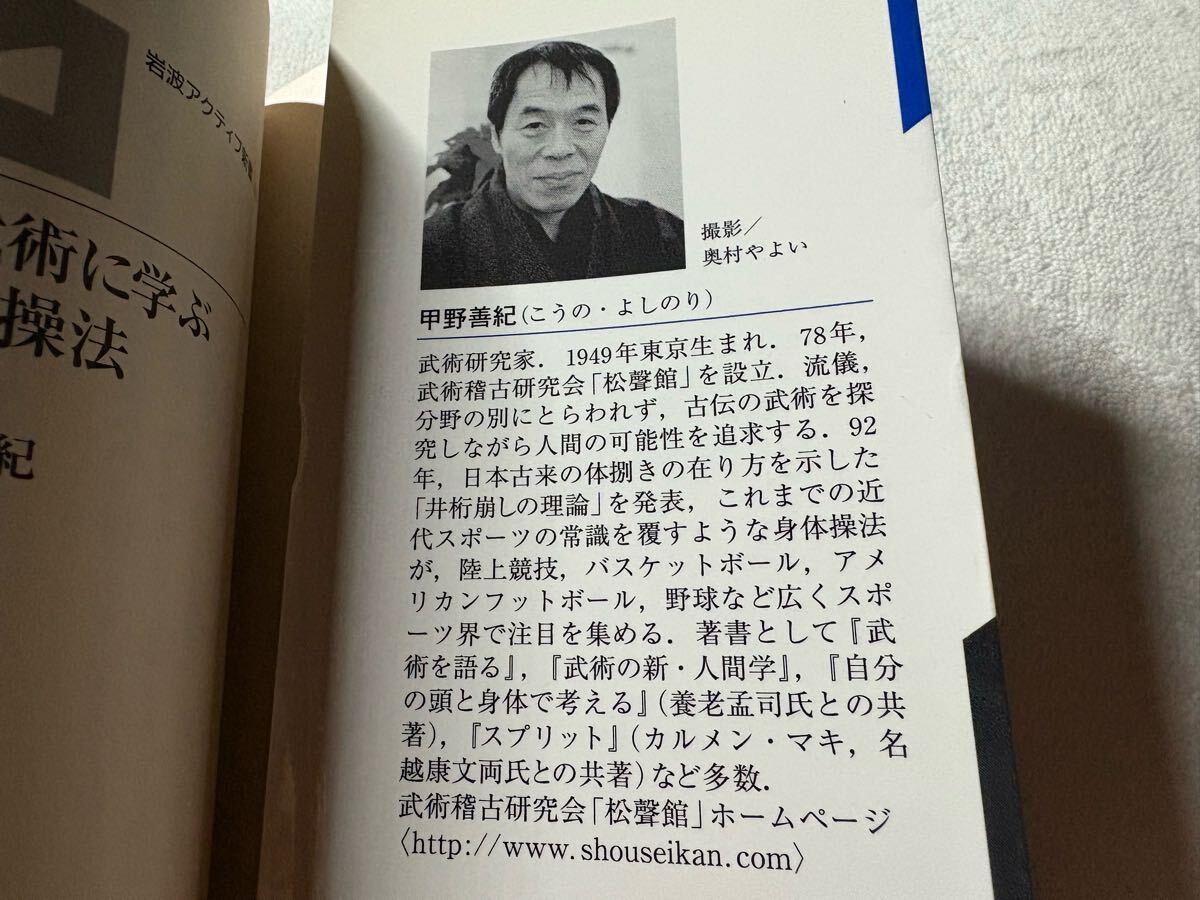 岩波アクティブ新書
術に学ぶ
操法
紀
撮影／
奥村やよい
甲野善紀(こうの・よしのり)
武術研究家．1949年東京生まれ．78年，
武術稽古研究会「松聲館」を設立．流儀，
分野の別にとらわれず，古伝の武術を探
究しながら人間の可能性を追求する．92
年，日本古来の体捌きの在り方を示した
「井桁崩しの理論」を発表，これまでの近
代スポーツの常識を覆すような身体操法
が，陸上競技，バスケットボール，アメ
リカンフットボール，野球など広くスポ
ーツ界で注目を集める．著書として『武
術を語る』，『武術の新・人間学』，『自分
の頭と身体で考える』(養老孟司氏との共
著)，『スプリット』(カルメン・マキ，名
越康文両氏との共著)など多数．
武術稽古研究会「松聲館」ホームページ
〈http://www.shouseikan.com〉